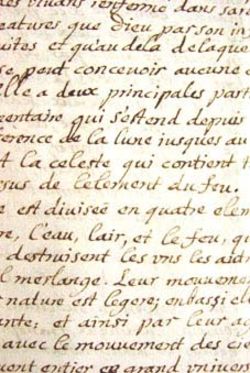 les vivans renfermé dans san
eatures que dieu par son in
uites et qu'au dela de laque
se peut concevoir aucune
elle a deux principales part
mentaire qui s'estend depuis
ference de la lune jusques au
et la celeste qui contient t
ssus de l'element du feu.
e est divisée en quatre elem
re, l'eau, l'air, et le feu, qu
destruisent les uns les aut
l meslange. Leur mouveme
r nature est legere; en bas si el
ante; et ainsi par leur ac
avec le mouvement des cie
uent entier ce grand univer